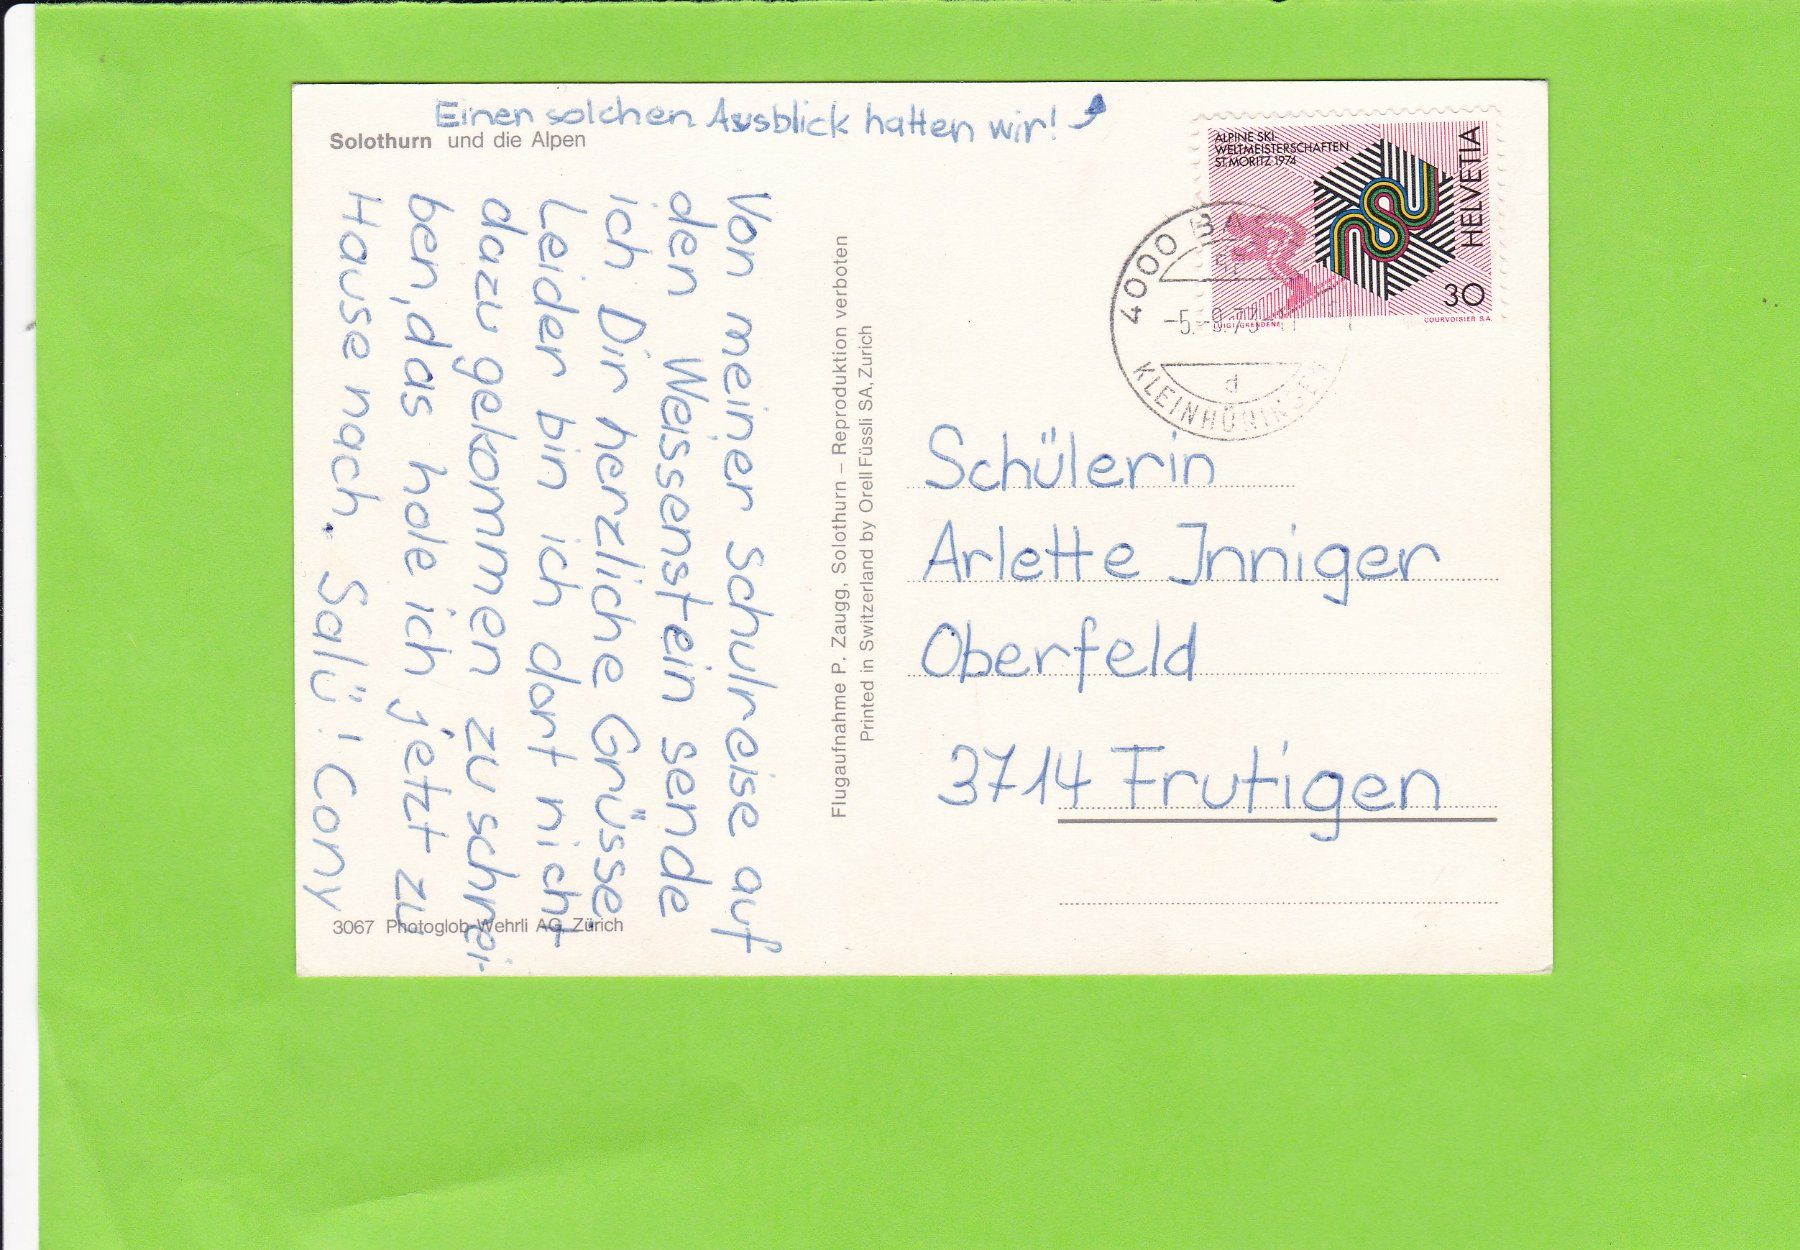 Einen solchen Ausblick hatten wir!
Solothurn und die Alpen
Von meiner Schulreise auf
den Weissenstein sende
ich Dir herzliche Grüsse
Leider bin ich dort nicht
dazu gekommen zu schrei-
ben, das hole ich jetzt zu
Hause nach. Salü! Cony
3067 Photoglob-Wehrli AG, Zürich
Flugaufnahme P. Zaugg, Solothurn – Reproduktion verboten
Printed in Switzerland by Orell Füssli SA, Zurich
ALPINE SKI-
WELTMEISTERSCHAFTEN
ST. MORITZ 1974
HELVETIA
30
LUIGI GRENDENE
COURVOISIER S.A.
4000 BA
-5.-9.73-
d
KLEINHÜNINGEN
Schülerin
Arlette Inniger
Oberfeld
3714 Frutigen